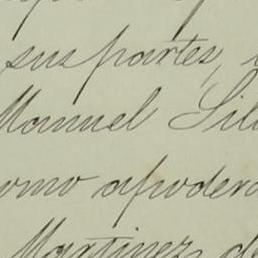 sus partes,
Manuel Sil
omo apodera
Martinez de